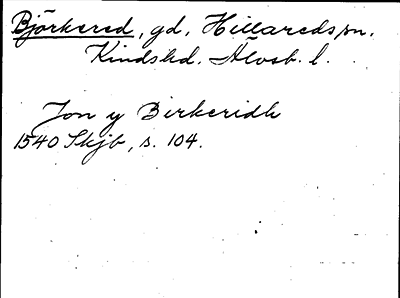 Björkered, gd, Hillareds sn.
Kinds hd. Älvsb. l.
Jon y Birkeridh
1540 Skjb, s. 104.